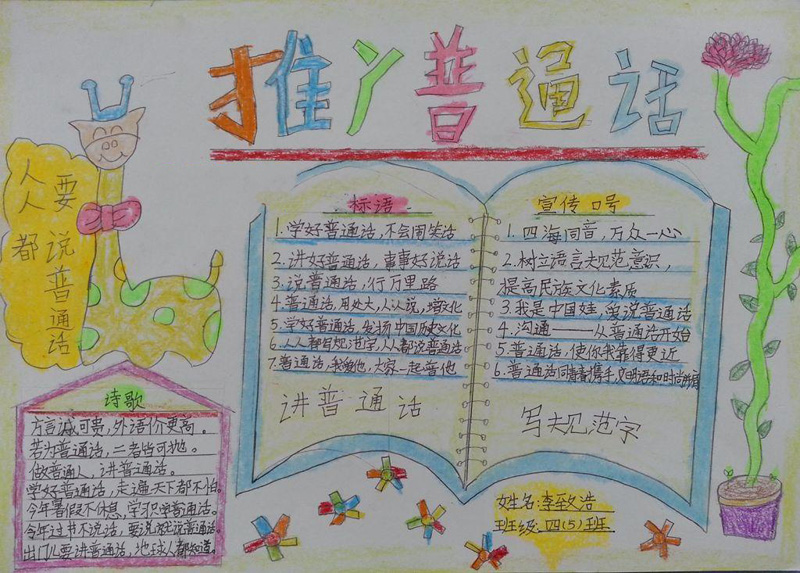 推广普通话
人人都
要说普通话
标语
1.学好普通话,不会闹笑话
2.讲好普通话,事事好说话
3.说普通话,行万里路
4.普通话,用处大,人人说,增文化
5.学好普通话,发扬中国历史文化
6.人人都写规范字,人人都说普通话
7.普通话,我爱他,大家一起普他
讲普通话
宣传口号
1.四海同音,万众一心
2.树立语言规范意识,
提高民族文化素质
3.我是中国娃,爱说普通话
4.沟通——从普通话开始
5.普通话,使你我靠得更近
6.普通话同青春携手,文明语和时尚
写规范字
诗歌
方言诚可贵,外语价更高。
若为普通话,二者皆可抛。
做普通人,讲普通话。
学好普通话,走遍天下都不怕。
今年暑假不休息,学习学普通话。
今年过节不说话,要说就说普通话
出门儿要讲普通话,地球人都知道。
姓名:李致浩
班级:四(5)班